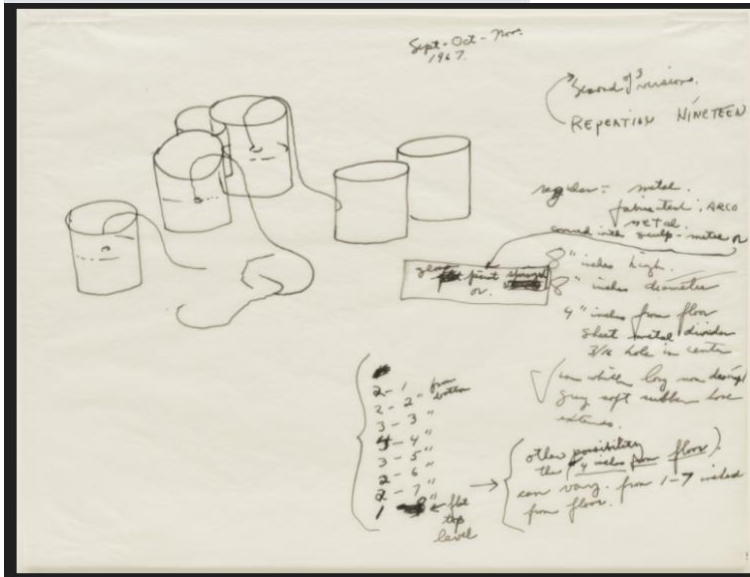 Sept - Oct - Nov.
1967.
Second of 3 versions.
REPEATION NINETEEN
regular = metal.
fabricated. ARCO
METAL.
sculp-metal or
8" inches high.
8" inches diameter
4" inches from floor
sheet metal divider
3/16 hole in center
paint
or
in which long
grey soft rubber hose
extends.
2 - 1 " from
bottom
2 - 2 "
3 - 3 "
4 - 4 "
3 - 5 "
2 - 6 "
2 - 7 "
1 8" ← flat
top
level
→ other possibility
the 4 inches from floor).
can vary. from 1-7 inches
from floor.